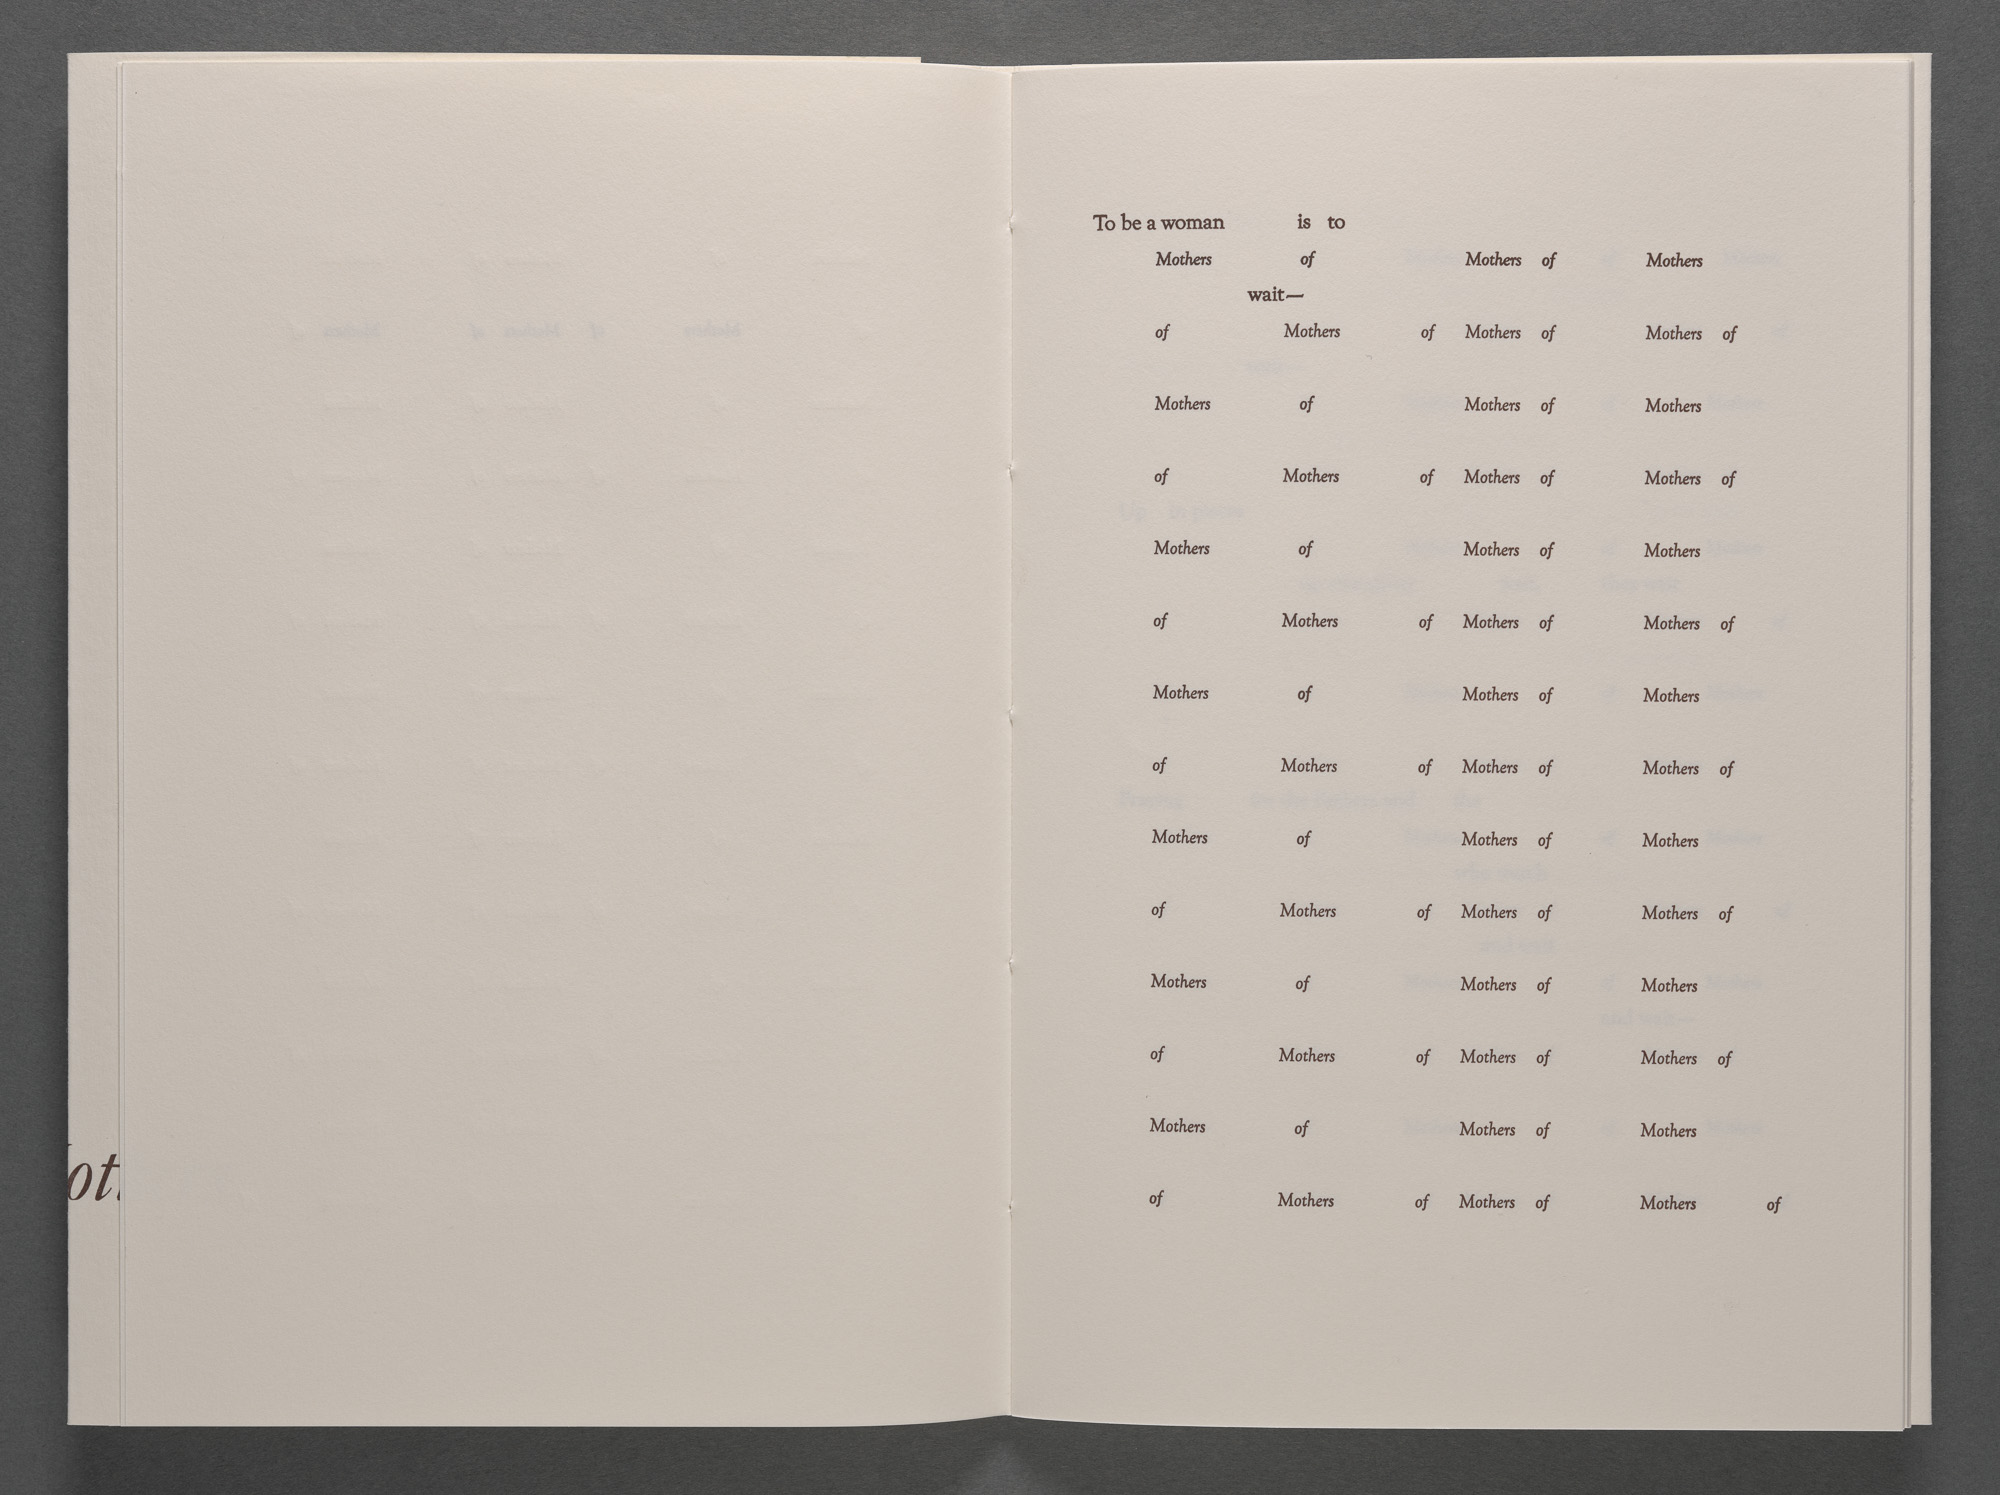 ot
To be a woman is to
Mothers of Mothers of Mothers
wait—
of Mothers of Mothers of Mothers of
Mothers of Mothers of Mothers
of Mothers of Mothers of Mothers of
Mothers of Mothers of Mothers
of Mothers of Mothers of Mothers of
Mothers of Mothers of Mothers
of Mothers of Mothers of Mothers of
Mothers of Mothers of Mothers
of Mothers of Mothers of Mothers of
Mothers of Mothers of Mothers
of Mothers of Mothers of Mothers of
Mothers of Mothers of Mothers
of Mothers of Mothers of Mothers of